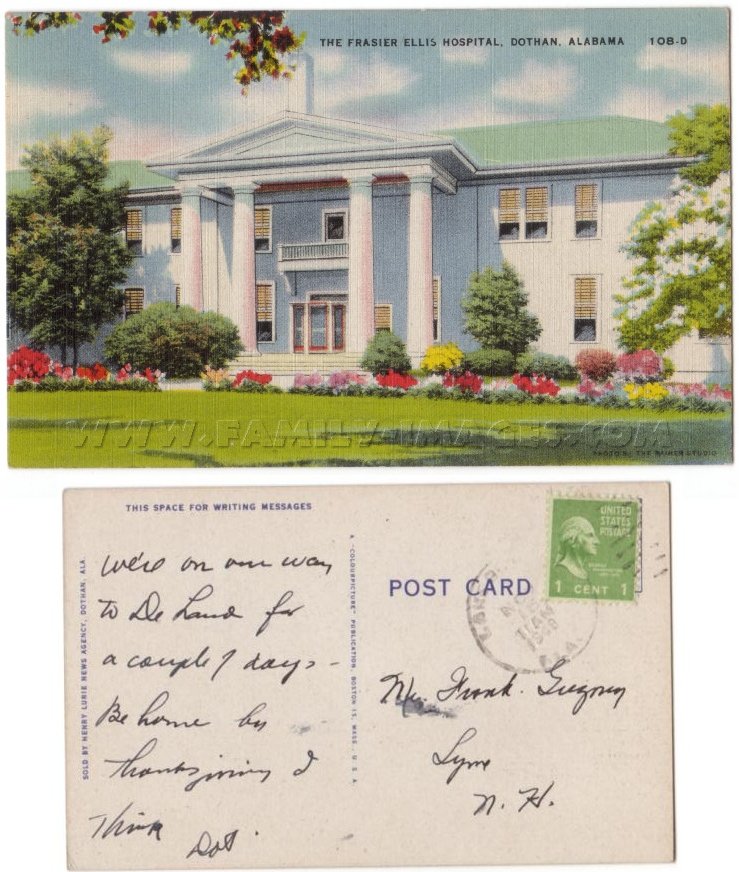 THE FRASIER ELLIS HOSPITAL, DOTHAN, ALABAMA 108-D
WWW.FAMILY-IMAGES.COM
PHOTO BY THE RAINER STUDIO
THIS SPACE FOR WRITING MESSAGES
We're on our way
to De Land for
a couple of days -
Be home by
Thanksgiving I
Think
Dot.
SOLD BY HENRY LURIE NEWS AGENCY, DOTHAN, ALA.
A "COLOURPICTURE" PUBLICATION, BOSTON 15, MASS., U.S.A.
POST CARD
UNITED
STATES
POSTAGE
1 CENT 1
FLA.
Frank.
Lyme
N. H.